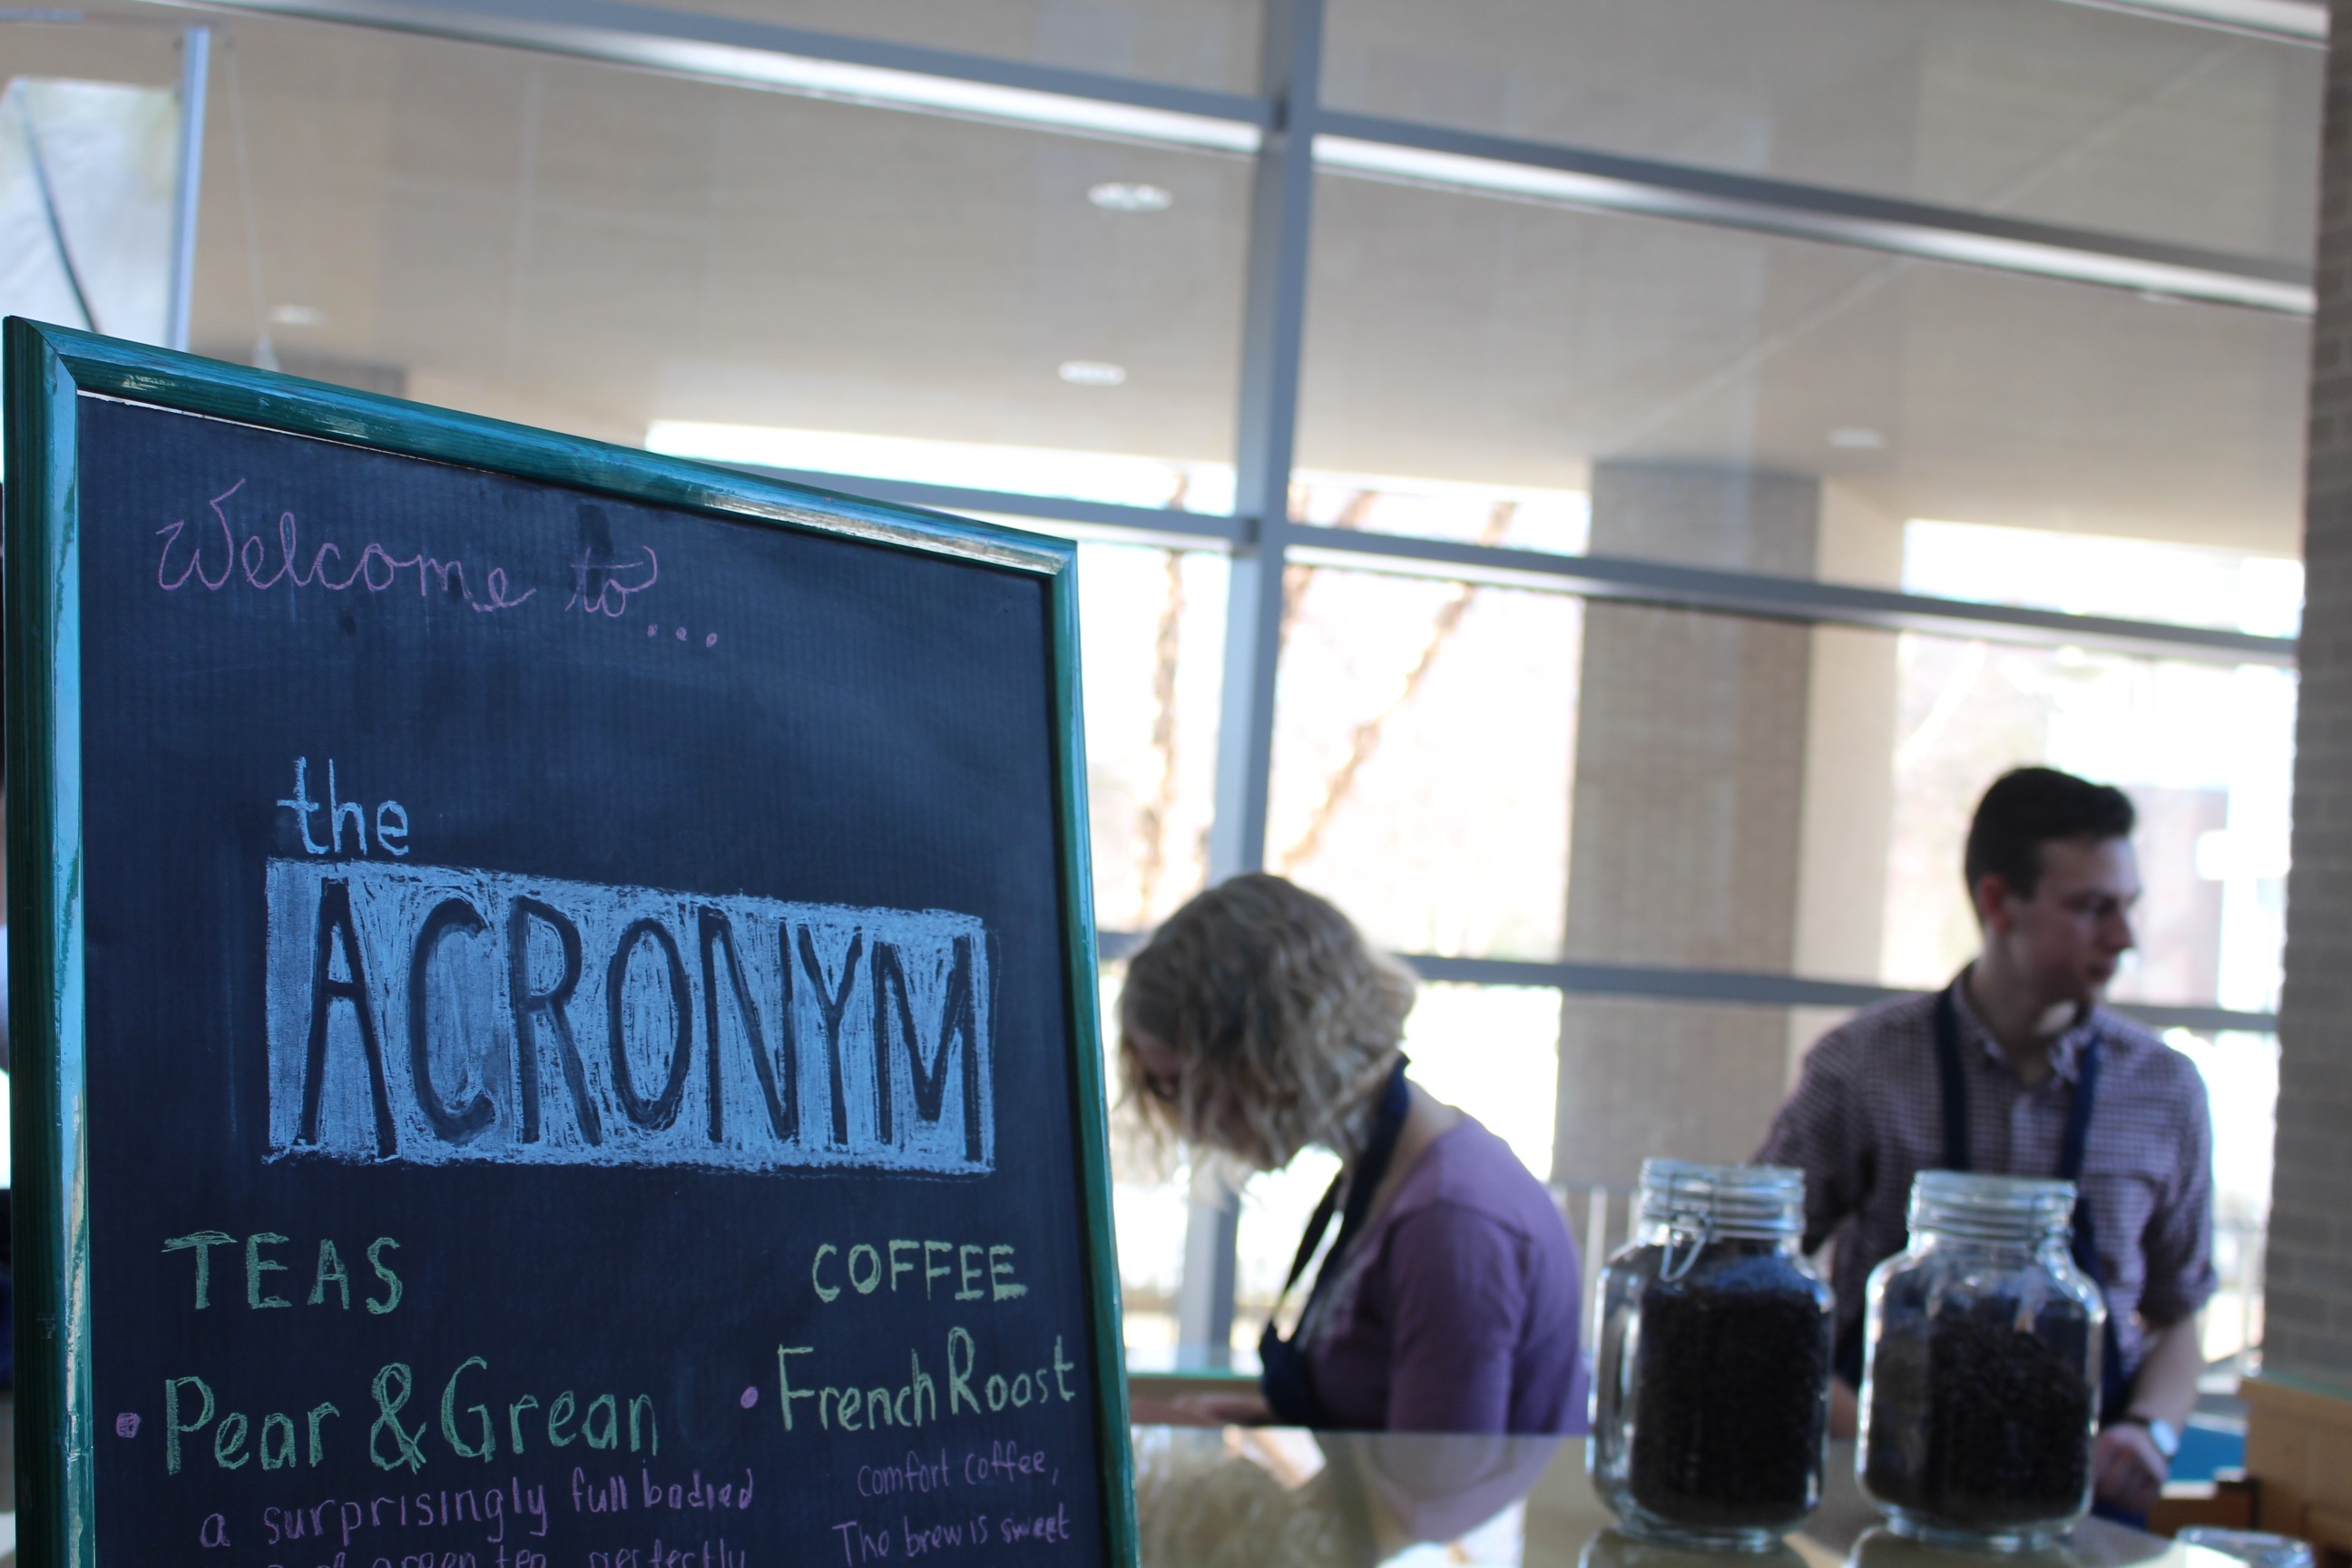 Welcome to...
the
ACRONYM
TEAS
• Pear & Grean
a surprisingly full bodied
green tea, perfectly
COFFEE
• French Roast
comfort coffee,
The brew is sweet